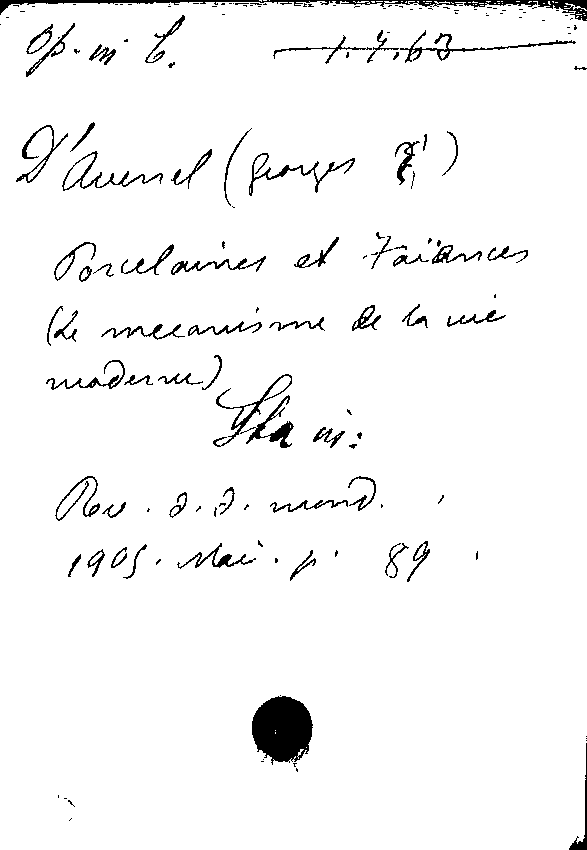 Op. in C. 1.4.63
D'Avenel (Georges)
Porcelaines et Faïances
(Le mecanisme de la vie
moderne)
Sta in:
Rev. d. d. mond.
1905. Mai. p. 89.